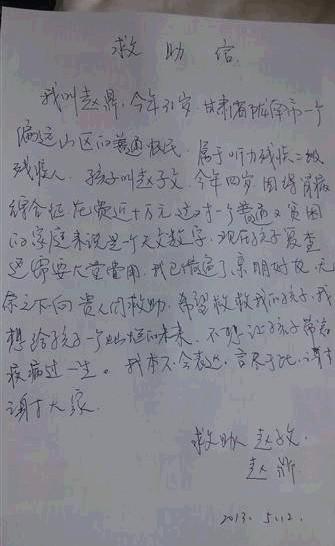 救助信
我叫赵昴,今年31岁.甘肃省陇南市一个
偏远山区的普通农民.属于听力残疾二级
残疾人.孩子叫赵子文.今年四岁.因得肾病
综合征.花费近十万元.这对一个普通又贫困
的家庭来说是一个天文数字.现在孩子复查
还需要大量费用.我已借遍了亲朋好友.无
奈之下向贵人们救助.希望救救我的孩子.我
想给孩子一个灿烂的未来.不想让孩子带着
疾病过一生。我本不会表达.言尽于此.谢谢
谢谢大家.
求助人 赵子文.
赵
2013. 5.12.